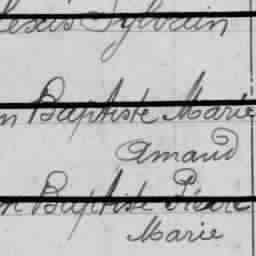 lexis Sylvain
n Baptiste Marie
Amand
n Baptiste Pierre
Marie